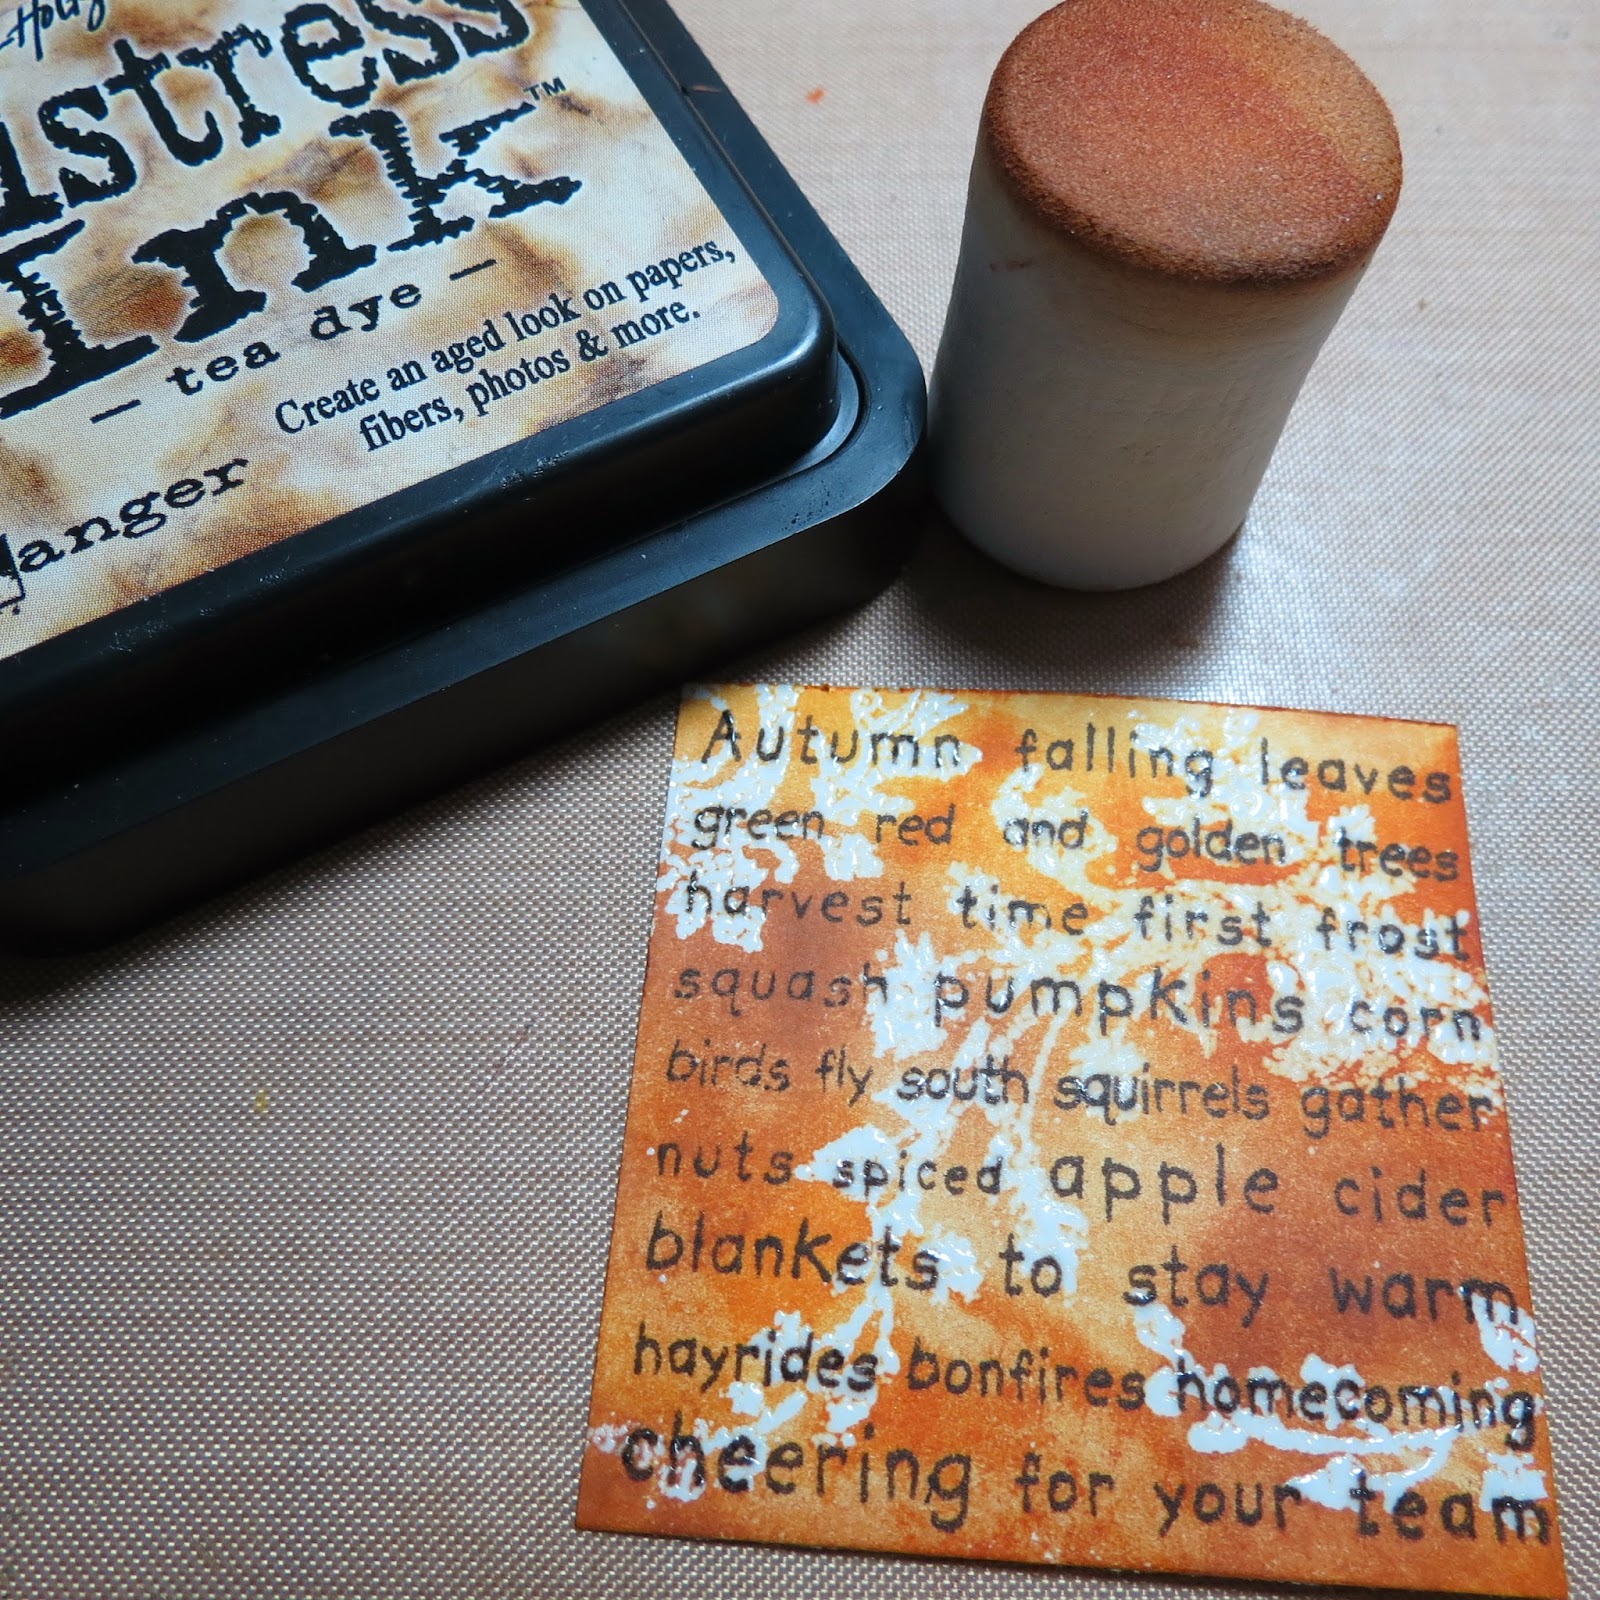 Holtz
istress
Ink™
- tea dye -
Create an aged look on papers,
fibers, photos & more.
anger
Autumn falling leaves
green red and golden trees
harvest time first frost
squash pumpkins corn
birds fly south squirrels gather
nuts spiced apple cider
blankets to stay warm
hayrides bonfires homecoming
cheering for your team